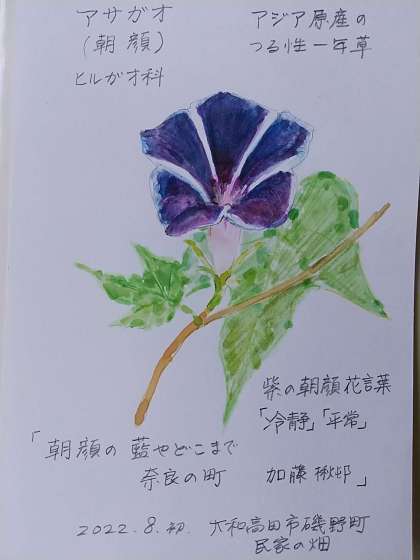 アサガオ
(朝顔)
ヒルガオ科
アジア原産の
つる性一年草
紫の朝顔花言葉
「冷静」「平常」
「朝顔の 藍やどこまで
奈良の町 加藤楸邨」
2022.8.初. 大和高田市磯野町
民家の畑